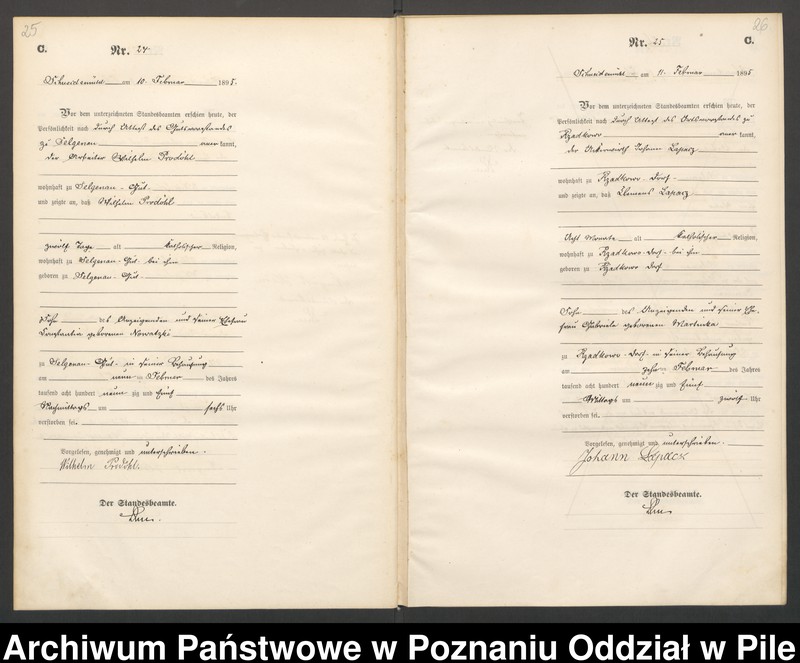 25
C.
Nr. 24.
Schneidemühl am 10. Februar 1895.
Vor dem unterzeichneten Standesbeamten erschien heute, der
Persönlichkeit nach durch Attest des Gutsvorstandes
zu Selgenau anerkannt,
der Arbeiter Wilhelm Prodöhl
wohnhaft zu Selgenau-Gut
und zeigte an, daß Wilhelm Prodöhl
zwölf Tage alt katholischer Religion,
wohnhaft zu Selgenau-Gut bei ihm
geboren zu Selgenau-Gut
Sohn des Anzeigenden und seiner Ehefrau
Konstantia geborenen Nowatzki
zu Selgenau-Gut in seiner Behausung
am neunten Februar des Jahres
tausend acht hundert neunzig und fünf
Nachmittags um sechs Uhr
verstorben sei.
Vorgelesen, genehmigt und unterschrieben.
Wilhelm Prodöhl.
Der Standesbeamte.
26
Nr. 25
C.
Schneidemühl am 11. Februar 1895
Vor dem unterzeichneten Standesbeamten erschien heute, der
Persönlichkeit nach durch Attest des Ortsvorstandes zu
Rzadkowo anerkannt,
der Ackerwirth Johann Łapacz
wohnhaft zu Rzadkowo Dorf
und zeigte an, daß Klemens Łapacz
Acht Monate alt katholischer Religion,
wohnhaft zu Rzadkowo-Dorf bei ihm
geboren zu Rzadkowo Dorf
Sohn des Anzeigenden und seiner Ehe-
frau Gabriele geborenen Martenka
zu Rzadkowo-Dorf in seiner Behausung
am zehnten Februar des Jahres
tausend acht hundert neunzig und fünf
Mittags um zwölf Uhr
verstorben sei.
Vorgelesen, genehmigt und unterschrieben.
Johann Łapack
Der Standesbeamte.
Archiwum Państwowe w Poznaniu Oddział w Pile